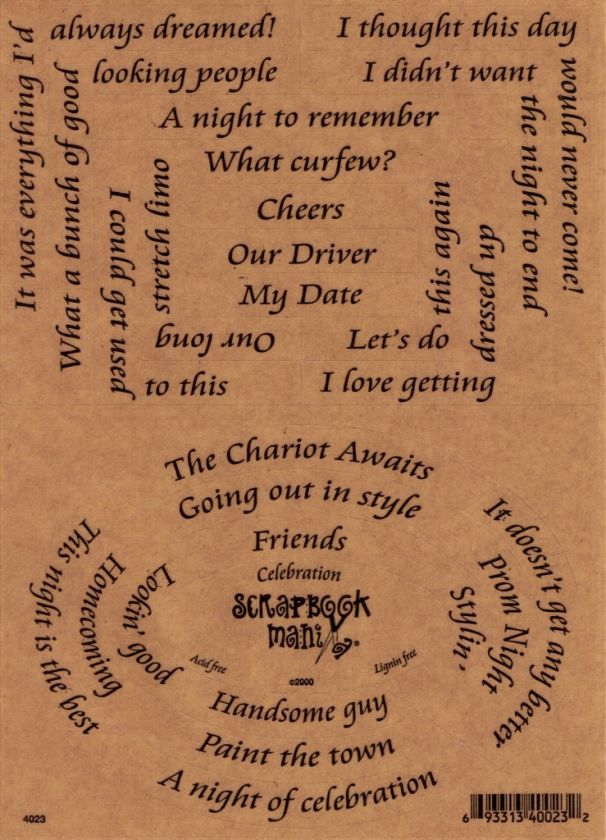 It was everything I'd
always dreamed!
I thought this day
would never come!
What a bunch of good
looking people
I didn't want
the night to end
A night to remember
What curfew?
Cheers
Our Driver
My Date
I could get used
to this
Our long
stretch limo
Let's do
this again
I love getting
dressed up
The Chariot Awaits
Going out in style
Friends
Celebration
SCRAPBOOK
MANIA®
Acid free
Lignin free
©2000
This night is the best
Homecoming
Lookin' good
It doesn't get any better
Prom Night
Stylin'
Handsome guy
Paint the town
A night of celebration
4023
6 93313 40023 2